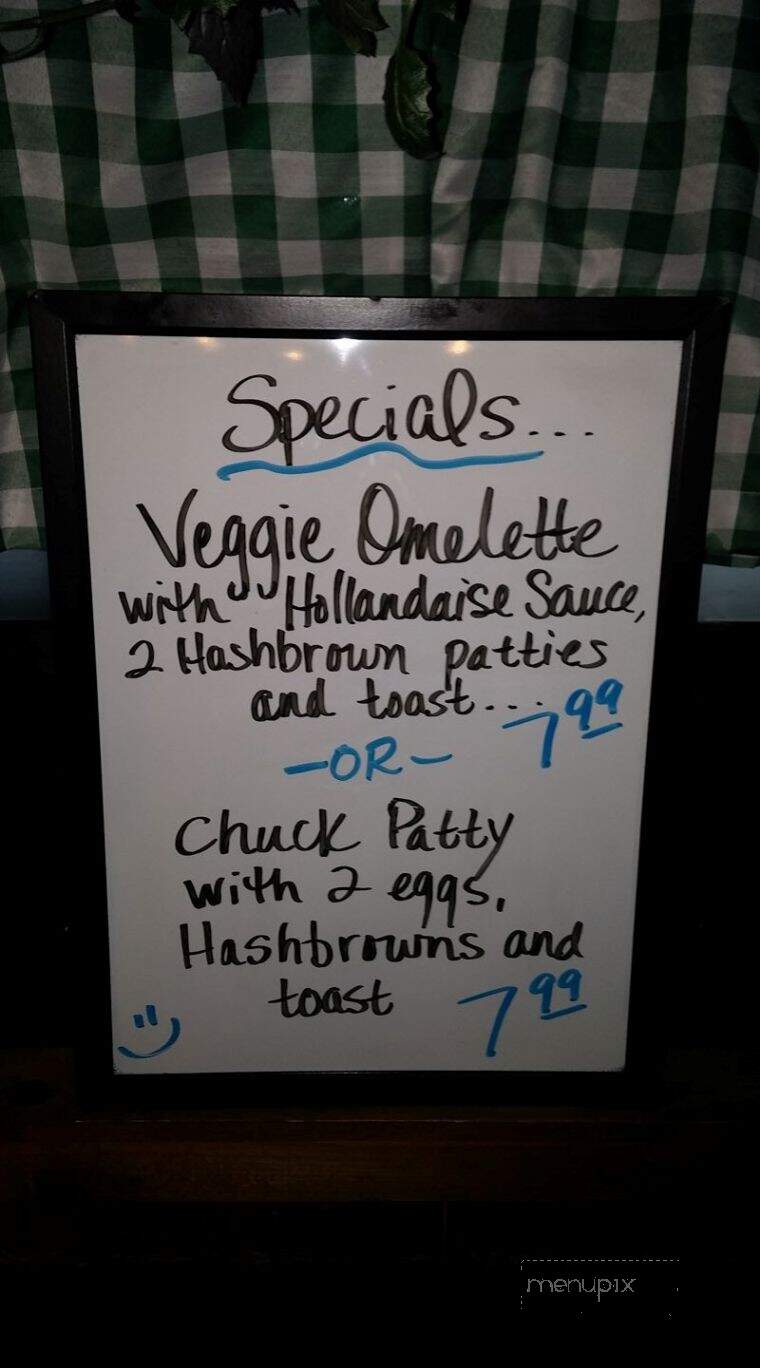 Specials...
Veggie Omelette
with Hollandaise Sauce,
2 Hashbrown patties
and toast... 7.99
-OR-
Chuck Patty
with 2 eggs,
Hashbrowns and
toast 7.99
menupix